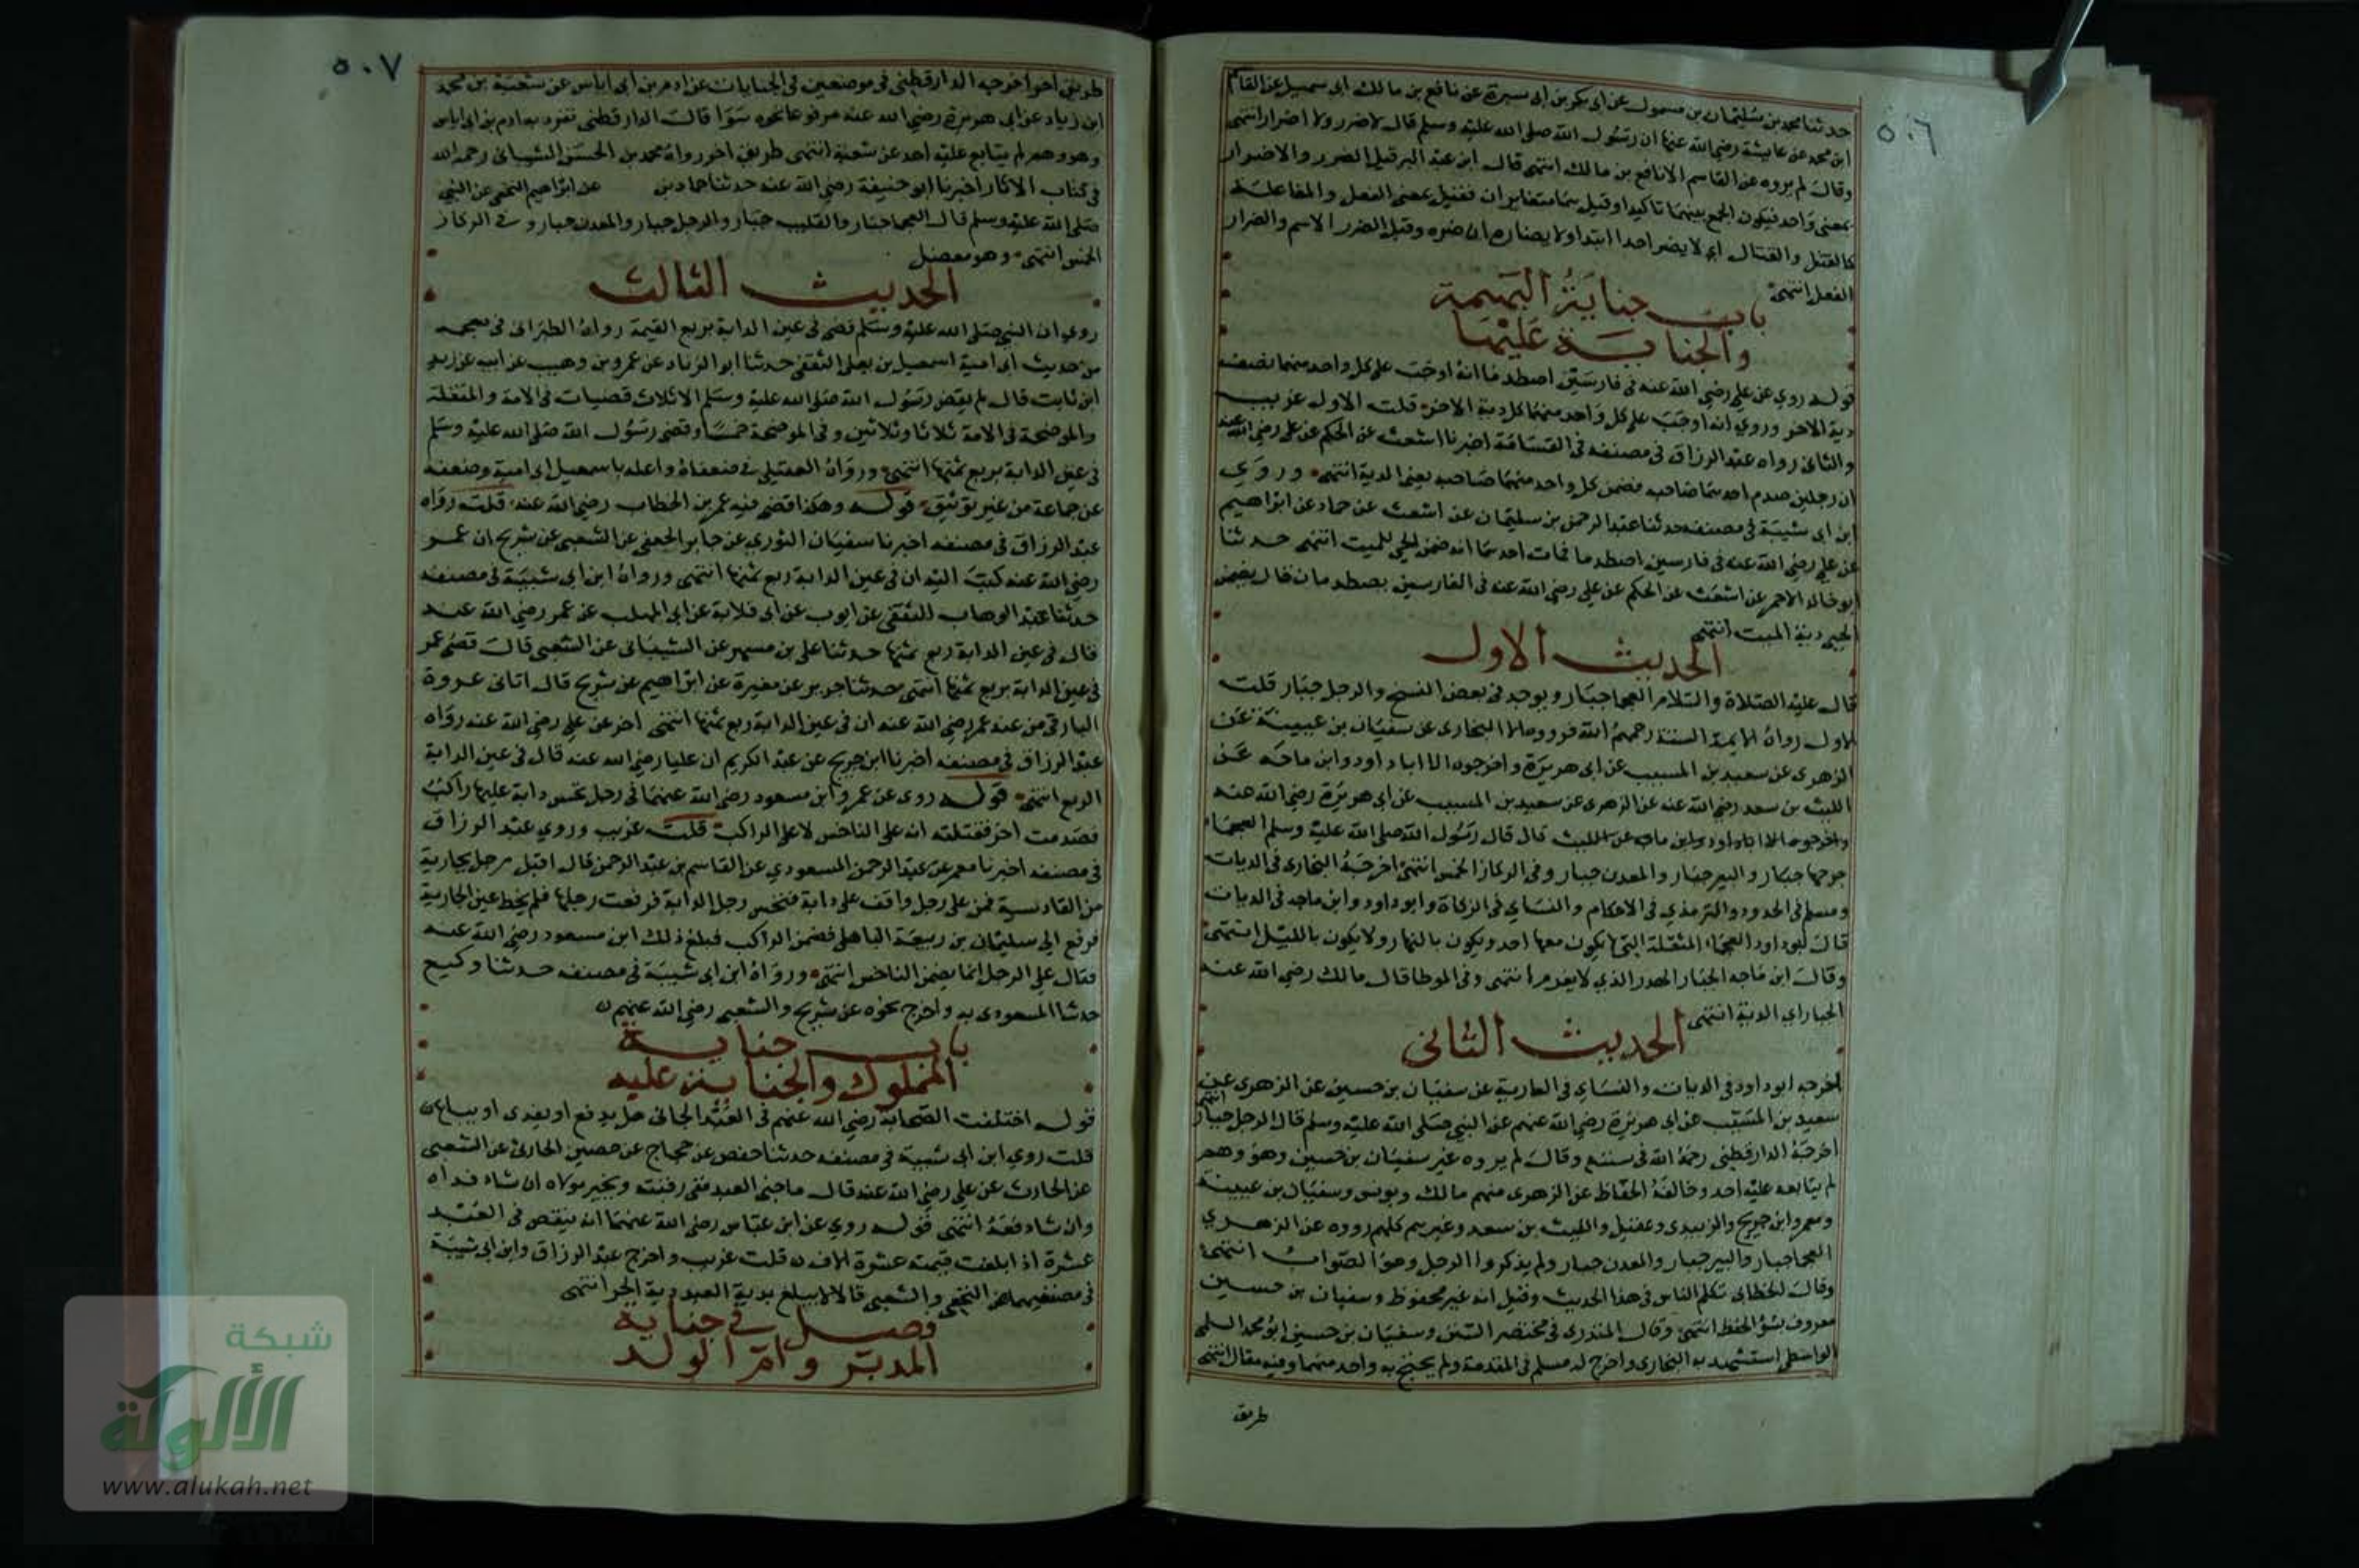 ٥٠٦
حدثنا محمد بن سليمان بن مسمول عن ابى بكر بن ابى سبرة عن نافع بن مالك ابى سهيل عن القاسم
ابن محمد عن عايشة رضي الله عنها ان رسول الله صلى الله عليه وسلم قال لا ضرر ولا اضرار انتهى
وقال لم يروه عن القاسم الا نافع بن مالك انتهى قال ابن عبد البر قيل الضرر والاضرار
بمعنى واحد فيكون الجمع بينهما تاكيدا وقيل هما متغايران فقيل بمعنى الفعل والمفاعلة
كالقتل والقتال اي لا يضر احدا ابتدا ولا يضاره ان ضره وقيل الضرر الاسم والضرار
الفعل انتهى
باب جناية البهيمة
والجناية عليها
قوله روي عن علي رضي الله عنه في فارسين اصطدما انه اوجب على كل واحد منهما نصف
دية الاخر وروي انه اوجب على كل واحد منهما كل دية الاخر قلت الاول غريب
والثانى رواه عبد الرزاق في مصنفه في القسامة اخبرنا اشعث عن الحكم عن علي رضي الله عنه
ان رجلين صدم احدهما صاحبه فضمن كل واحد منهما صاحبه يعني الدية انتهى وروى
ابن ابى شيبة في مصنفه حدثنا عبد الرحمن بن سليمان عن اشعث عن حماد عن ابراهيم
عن علي رضي الله عنه في فارسين اصطدما فمات احدهما انه ضمن الحي للميت انتهى حدثنا
ابو خالد الاحمر عن اشعث عن الحكم عن علي رضي الله عنه في الفارسين يصطدمان قال يضمن
الحي دية الميت انتهى
الحديث الاول
قال عليه الصلاة والسلام العجما جبار ويوجد في بعض النسخ والرجل جبار قلت
الاول رواه الايمة الستة رحمهم الله البخاري عن سفيان بن عيينة عن
الزهرى عن سعيد بن المسيب عن ابى هريرة واخرجوه الا ابا داود وابن ماجه عن
الليث بن سعد رضي الله عنه عن الزهرى عن سعيد بن المسيب عن ابى هريرة رضي الله عنه
واخرجوه الا ابا داود وابن ماجه عن الليث قال قال رسول الله صلى الله عليه وسلم العجماء
جرحها جبار والبير جبار والمعدن جبار وفى الركاز الخمس انتهى اخرجه البخارى فى الديات
ومسلم فى الحدود والترمذي فى الاحكام والنساي فى الزكاة وابو داود وابن ماجه فى الديات
قال ابو داود العجماء المنفلتة التى لا يكون معها احد ويكون بالنهار ولا يكون بالليل انتهى
وقال ابن ماجه الجبار الهدر الذي لا يغرم انتهى وفى الموطا قال مالك رضي الله عنه
الجبار اي الدية انتهى
الحديث الثانى
اخرجه ابو داود فى الديات والنساي فى العارية عن سفيان بن حسين عن الزهرى عن
سعيد بن المسيب عن ابى هريرة رضي الله عنهم عن النبي صلى الله عليه وسلم قال الرجل جبار انتهى
اخرجه الدارقطنى رحمه الله فى سننه وقال لم يروه غير سفيان بن حسين وهو وهم
لم يتابعه عليه احد وخالفه الحفاظ عن الزهرى منهم مالك ويونس وسفيان بن عيينة
ومعمر وابن جريج والزبيدى وعقيل والليث بن سعد وغيرهم كلهم رووه عن الزهري
العجما جبار والبير جبار والمعدن جبار ولم يذكروا الرجل وهو الصواب انتهى
وقال الخطابى تكلم الناس فى هذا الحديث وقيل انه غير محفوظ وسفيان بن حسين
معروف بسؤ الحفظ انتهى وقال المنذرى فى مختصر السنن وسفيان بن حسين ابو محمد السلمى
الواسطى استشهد به البخارى واخرج له مسلم فى المقدمة ولم يحتج به واحد منهما وفيه مقال انتهى
طريق
٥٠٧
طريق اخر اخرجه الدارقطنى فى موضعين فى الجنايات عن ادم بن ابى اياس عن شعبة بن محمد
ابن زياد عن ابى هريرة رضي الله عنه مرفوعا نحوه سوا قال الدارقطنى تفرد به ادم بن ابى اياس
وهو وهم لم يتابع عليه احد عن شعبة انتهى طريق اخر رواه محمد بن الحسن الشيبانى رحمه الله
فى كتاب الاثار اخبرنا ابو حنيفة رضي الله عنه حدثنا حماد بن عن ابراهيم النخعى عن النبي
صلى الله عليه وسلم قال العجما جبار والقليب جبار والرجل جبار والمعدن جبار وفى الركاز
الخمس انتهى وهو معضل
الحديث الثالث
روي ان النبي صلى الله عليه وسلم قضى فى عين الدابة بربع القيمة رواه الطبرانى فى معجمه
من حديث ابى امية اسمعيل بن يعلى الثقفى حدثنا ابو الزناد عن عمرو بن وهيب عن ابيه عن زيد
ابن ثابت قال لم يقض رسول الله صلى الله عليه وسلم الا ثلاث قضيات فى الامة والمنقلة
والموضحة فى الامة ثلاثا وثلاثين وفى الموضحة خمسا وقضى رسول الله صلى الله عليه وسلم
فى عين الدابة بربع ثمنها انتهى ورواه العقيلى فى ضعفاه واعله باسمعيل ابى امية وضعفه
عن جماعة من غير توثيق قوله وهكذا قضى فيه عمر بن الخطاب رضي الله عنه قلت رواه
عبد الرزاق فى مصنفه اخبرنا سفيان الثورى عن جابر الجعفى عن الشعبى عن شريح ان عمر
رضي الله عنه كتب اليه ان فى عين الدابة ربع ثمنها انتهى ورواه ابن ابى شيبة فى مصنفه
حدثنا عبد الوهاب الثقفى عن ايوب عن ابى قلابة عن ابى المهلب عن عمر رضي الله عنه
قال فى عين الدابة ربع ثمنها حدثنا على بن مسهر عن الشيبانى عن الشعبى قال قضى عمر
فى عين الدابة بربع ثمنها انتهى حدثنا جرير عن مغيرة عن ابراهيم عن شريح قال اتانى عروة
البارقى من عند عمر رضي الله عنه ان فى عين الدابة ربع ثمنها انتهى اخر عن علي رضي الله عنه رواه
عبد الرزاق فى مصنفه اخبرنا ابن جريج عن عبد الكريم ان عليا رضي الله عنه قال فى عين الدابة
الربع انتهى قوله روى عن عمر وابن مسعود رضي الله عنهما فى رجل نخس دابة عليها راكب
فصدمت اخر فقتلته انه على الناخس لا على الراكب قلت غريب وروي عبد الرزاق
فى مصنفه اخبرنا معمر عن عبد الرحمن المسعودي عن القاسم بن عبد الرحمن قال اقبل رجل بجارية
من القادسية فمر على رجل واقف على دابة فنخس رجل الدابة فرفعت رجلها فلم يخط عين الجارية
فرفع الى سليمان بن ربيعة الباهلى فضمن الراكب فبلغ ذلك ابن مسعود رضي الله عنه
فقال علي الرجل انما يضمن الناخس انتهى ورواه ابن ابى شيبة فى مصنفه حدثنا وكيع
حدثنا المسعودى به واخرج نحوه عن شريح والشعبى رضي الله عنهم
باب جناية
المملوك والجناية عليه
قوله اختلفت الصحابة رضي الله عنهم فى العبد الجانى هل يدفع او يفدى او يباع
قلت روي ابن ابى شيبة فى مصنفه حدثنا حفص عن حجاج عن حصين الحارثى عن الشعبى
عن الحارث عن علي رضي الله عنه قال ما جنى العبد ففى رقبته ويخير مولاه ان شاء فداه
وان شاء دفعه انتهى قوله روي عن ابن عباس رضي الله عنهما انه ينقص فى العبد
عشرة اذا بلغت قيمته عشرة الاف قلت غريب واخرج عبد الرزاق وابن ابى شيبة
فى مصنفيهما عن النخعى والشعبى قالا لا يبلغ بدية العبد دية الحر انتهى
فصل فى جناية
المدبر وام الولد
شبكة
الألوكة
www.alukah.net